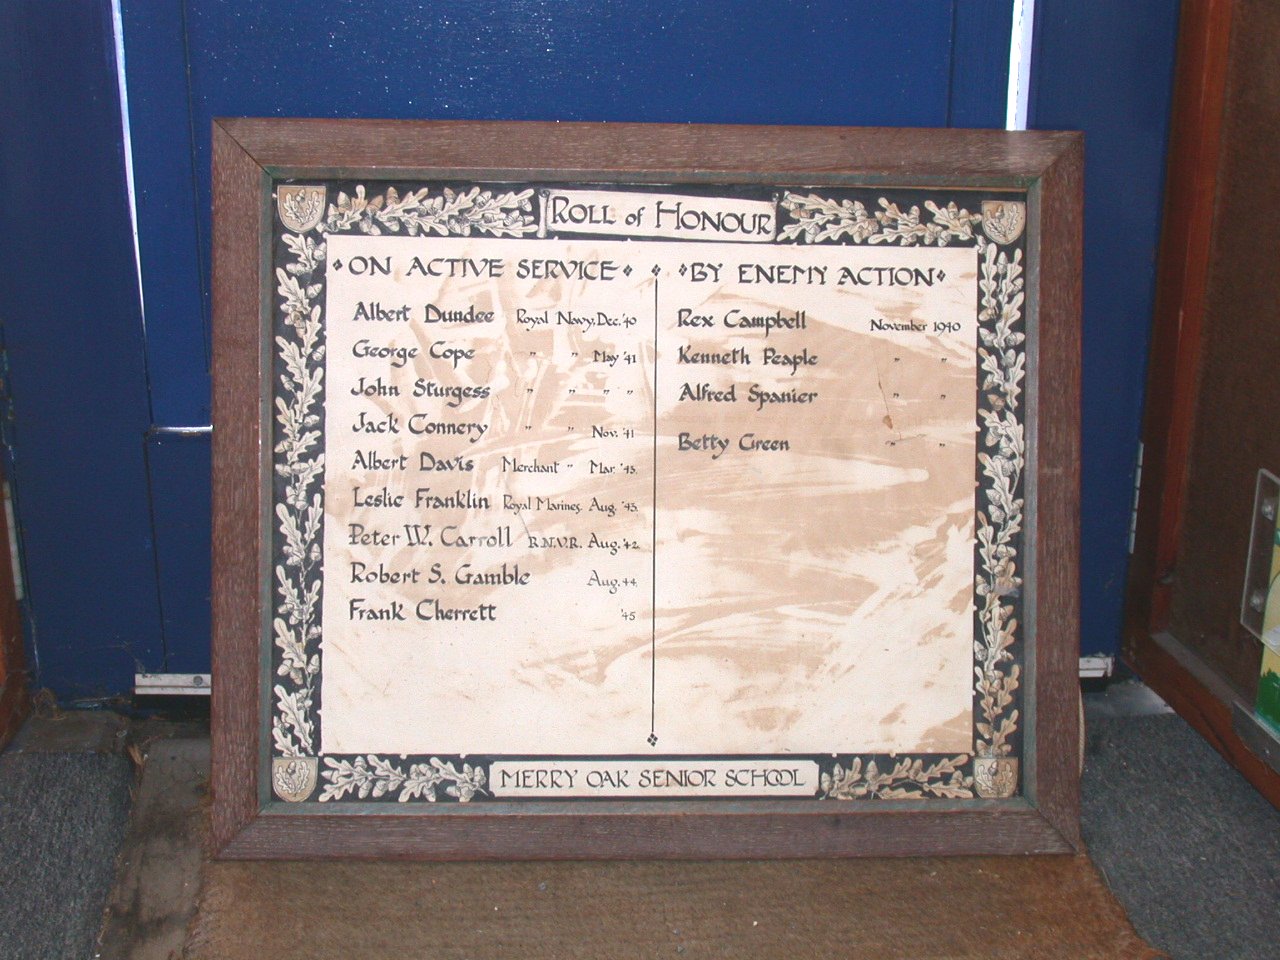 ROLL of HONOUR
ON ACTIVE SERVICE
Albert Dundee Royal Navy, Dec. '40
George Cope " " May '41
John Sturgess " " " "
Jack Connery " " Nov. '41
Albert Davis Merchant " Mar. '43.
Leslie Franklin Royal Marines. Aug. '43.
Peter W. Carroll R.N.V.R. Aug. '42.
Robert S. Gamble Aug. 44.
Frank Cherrett '45
BY ENEMY ACTION
Rex Campbell November 1940
Kenneth Peaple " "
Alfred Spanier " "
Betty Green " "
MERRY OAK SENIOR SCHOOL